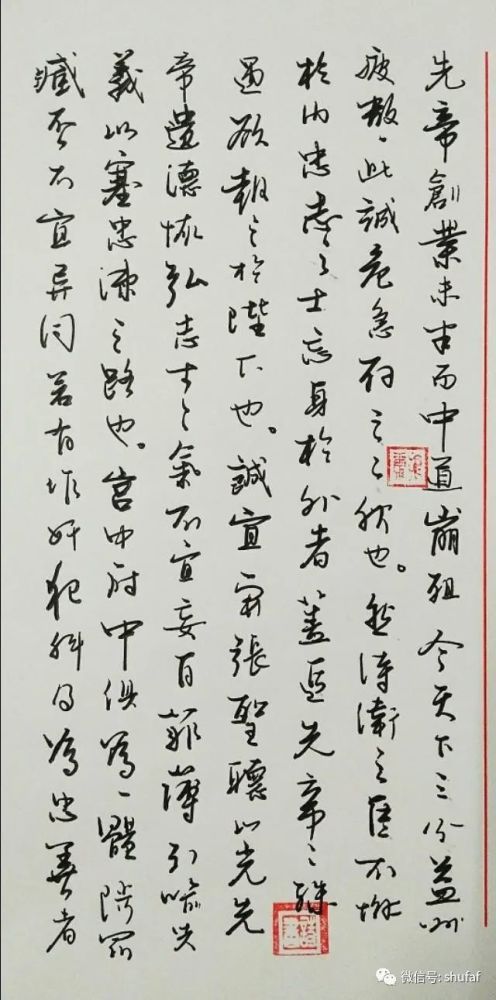 先帝創業未半而中道崩殂今天下三分益州
疲敝、此誠危急存亡之秋也。然侍衛之臣不懈
於內忠志之士忘身於外者蓋追先帝之殊
遇欲報之於陛下也。誠宜開張聖聽以光先
帝遺德恢弘志士之氣不宜妄自菲薄引喻失
義以塞忠諫之路也。宮中府中俱為一體陟罰
臧否不宜異同若有作奸犯科及為忠善者
微信号: shufaf